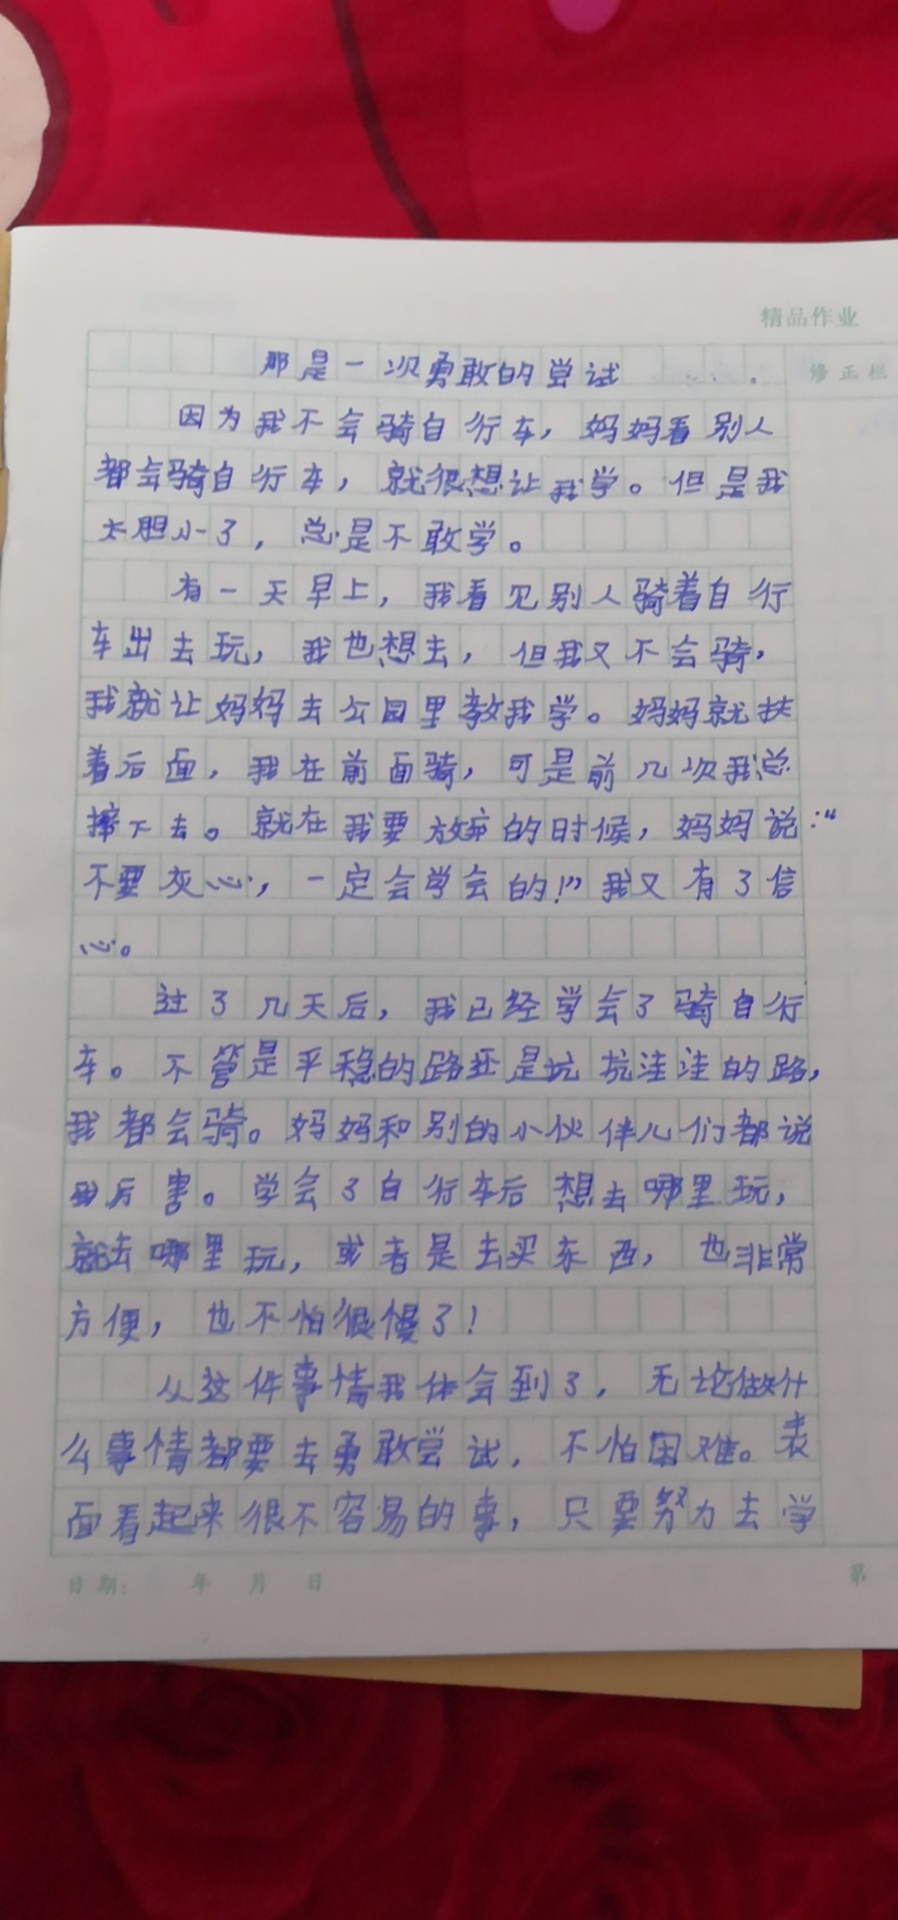 精品作业
那是一次勇敢的尝试
修正栏
因为我不会骑自行车，妈妈看别人
都会骑自行车，就很想让我学。但是我
太胆小了，总是不敢学。
有一天早上，我看见别人骑着自行
车出去玩，我也想去，但我又不会骑，
我就让妈妈去公园里教我学。妈妈就扶
着后面，我在前面骑，可是前几次我总
摔下去。就在我要放弃的时候，妈妈说：“
不要灰心，一定会学会的！”我又有了信
心。
过了几天后，我已经学会了骑自行
车。不管是平稳的路还是坑坑洼洼的路，
我都会骑。妈妈和别的小伙伴儿们都说
厉害。学会了自行车后想去哪里玩，
就去哪里玩，或者是去买东西，也非常
方便，也不怕很慢了！
从这件事情我体会到了，无论做什
么事情都要去勇敢尝试，不怕困难。表
面看起来很不容易的事，只要努力去学
日期： 年 月 日
第